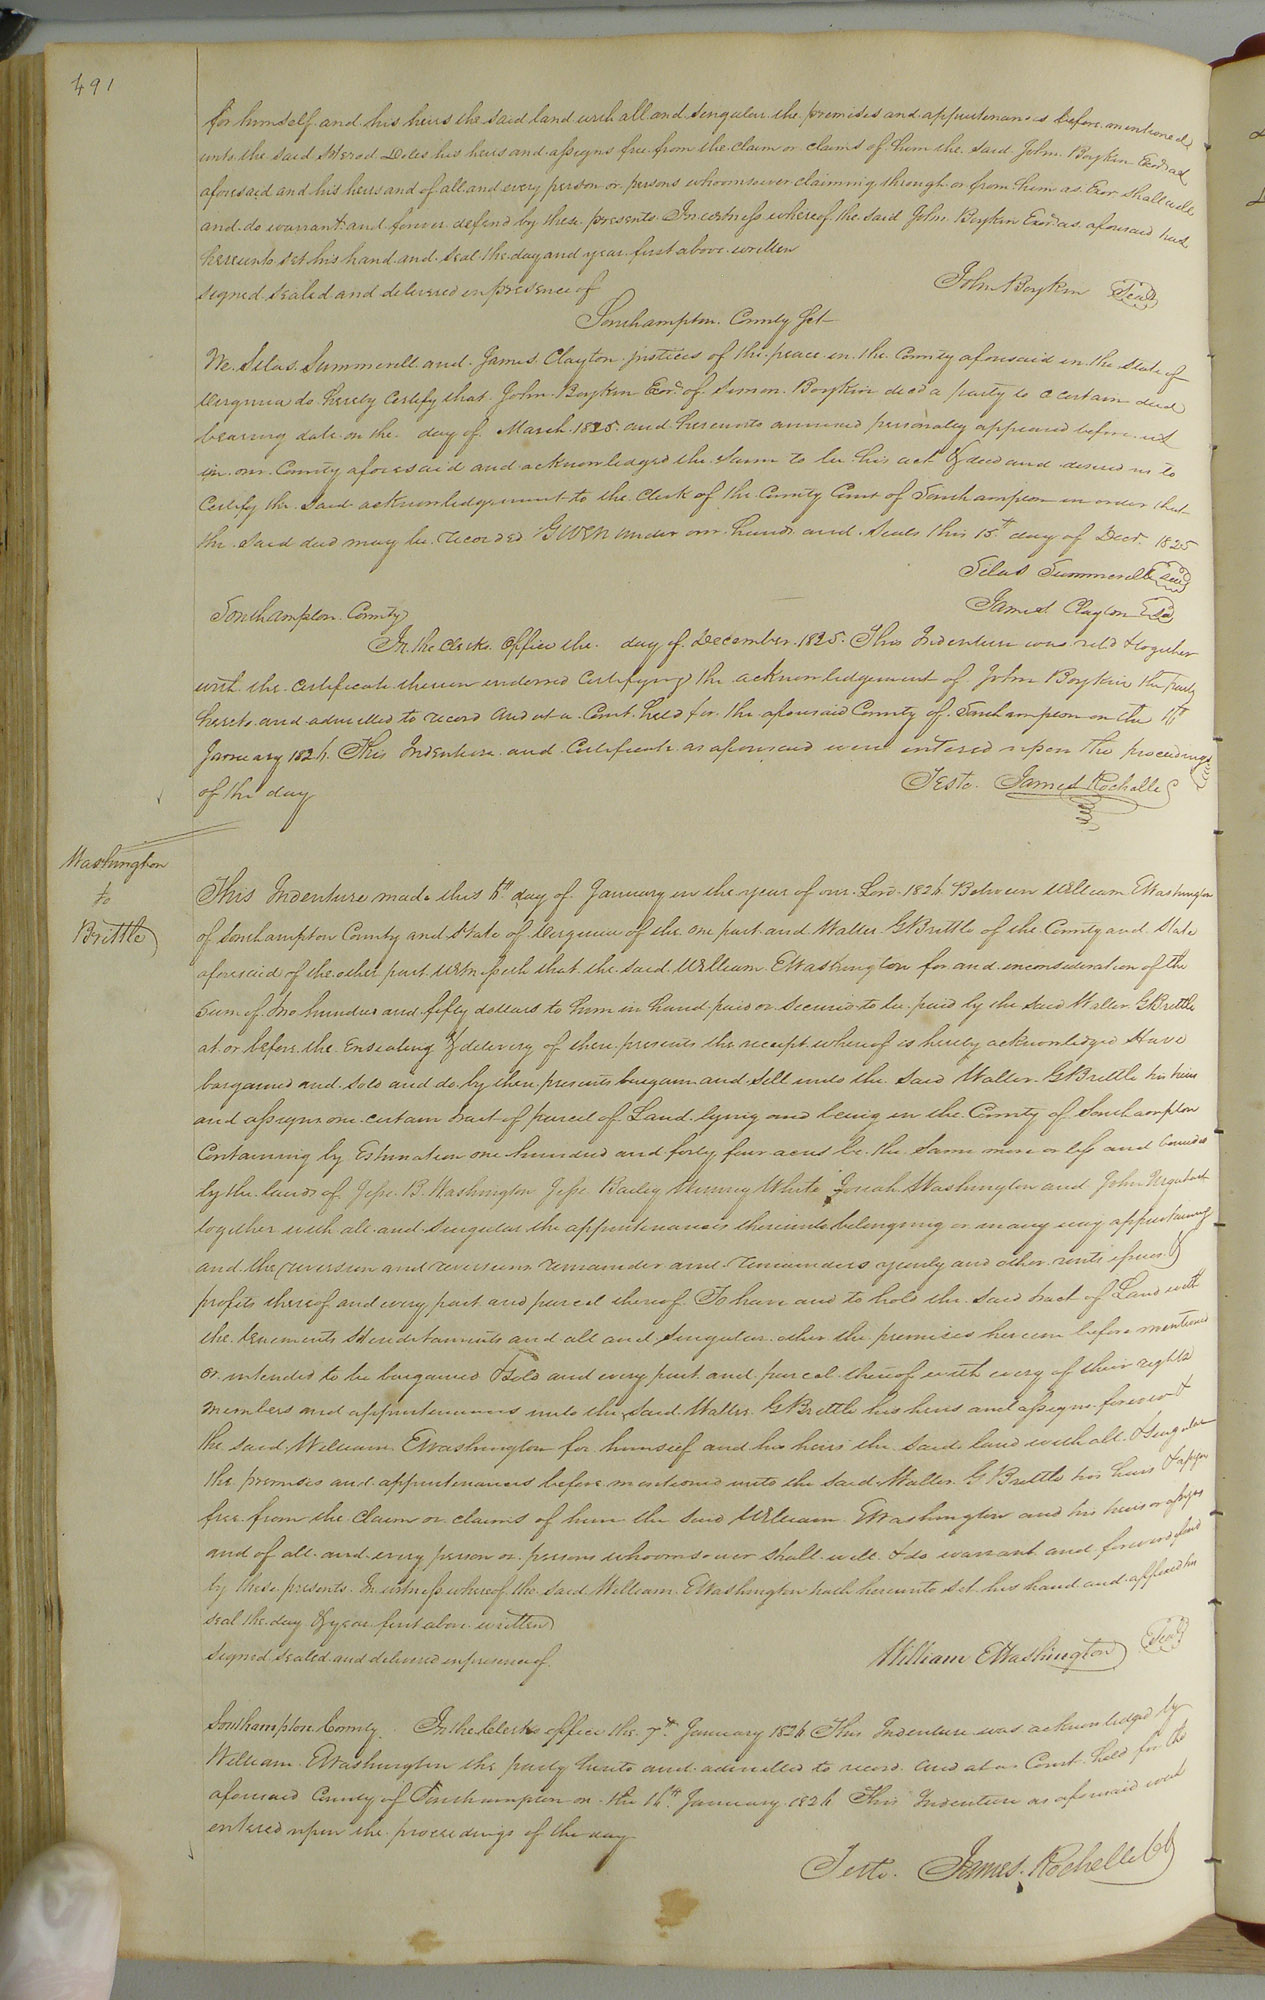 491
for himself and his heirs the said land with all and singular the premises and appurtenances before mentioned
unto the said Herod Doles his heirs and assigns free from the claim or claims of him the said John Boykin Exor as
aforesaid and his heirs and of all and every person or persons whomsoever claiming through or from him as Exor shall will
and do warrant and forever defend by these presents In witness whereof the said John Boykin Exor as aforesaid hath
hereunto set his hand and seal the day and year first above written
signed sealed and delivered in presence of
John Boykin Seal
Southampton County Sct
We Silas Summerell and James Clayton justices of the peace in the County aforesaid in the State of
Virginia do hereby Certify that John Boykin Exor of Simon Boykin decd a party to a certain deed
bearing date on the day of March 1825 and hereunto annexed personally appeared before us
in our County aforesaid and acknowledged the same to be his act & deed and desired us to
Certify the said acknowledgement to the Clerk of the County Court of Southampton in order that
the said deed may be recorded Given under our hands and seals this 15th day of Decr 1825
Silas Summerell Seal
James Clayton Seal
Southampton County
In the Clerks Office the day of December 1825. This Indenture was recd & together
with the Certificate thereon endorsed Certifying the acknowledgement of John Boykin the party
hereto and admitted to record And at a Court held for the aforesaid County of Southampton on the 16th
January 1826 This Indenture and Certificate as aforesaid were entered upon the proceedings
of the day
Teste. James Rochelle
Washington
to
Brittle
This Indenture made this 6th day of January in the year of our Lord 1826 Between William E Washington
of Southampton County and State of Virginia of the one part and Walter G Brittle of the County and State
aforesaid of the other part Witnesseth that the said William E Washington for and in consideration of the
sum of two hundred and fifty dollars to him in hand paid or secured to be paid by the said Walter G Brittle
at or before the Ensealing & delivery of these presents the receipt whereof is hereby acknowledged Have
bargained and sold and do by these presents bargain and sell unto the said Walter G Brittle his heirs
and assigns one certain tract of parcel of Land lying and being in the County of Southampton
Containing by Estimation one hundred and forty four acres be the same more or less and bounded
by the lands of Jesse B. Washington Jesse Bailey Henry White Josiah Washington and John
together with all and singular the appurtenances thereunto belonging or in any way appertaining
and the reversion and reversions remainder and remainders yearly and other rents issues &
profits thereof and every part and parcel thereof To have and to hold the said tract of Land with
the tenements Hereditaments and all and singular other the premises herein before mentioned
or intended to be bargained & sold and every part and parcel thereof with every of their rights
members and appurtenances unto the said Walter G Brittle his heirs and assigns forever &
the said William E Washington for himself and his heirs the said land with all & singular
the premises and appurtenances before mentioned unto the said Walter G Brittle his heirs & assigns
free from the claim or claims of him the said William E Washington and his heirs or assigns
and of all and every person or persons whomsoever shall will & do warrant and forever defend
by these presents In witness whereof the said William E Washington hath hereunto set his hand and affixed his
seal the day & year first above written
signed sealed and delivered in presence of
William E Washington Seal
Southampton County. In the Clerks office the 7th January 1826 This Indenture was acknowledged by
William E Washington the party hereto and admitted to record And at a Court held for the
aforesaid County of Southampton on the 16th January 1826 This Indenture as aforesaid was
entered upon the proceedings of the day
Teste. James Rochelle Cl